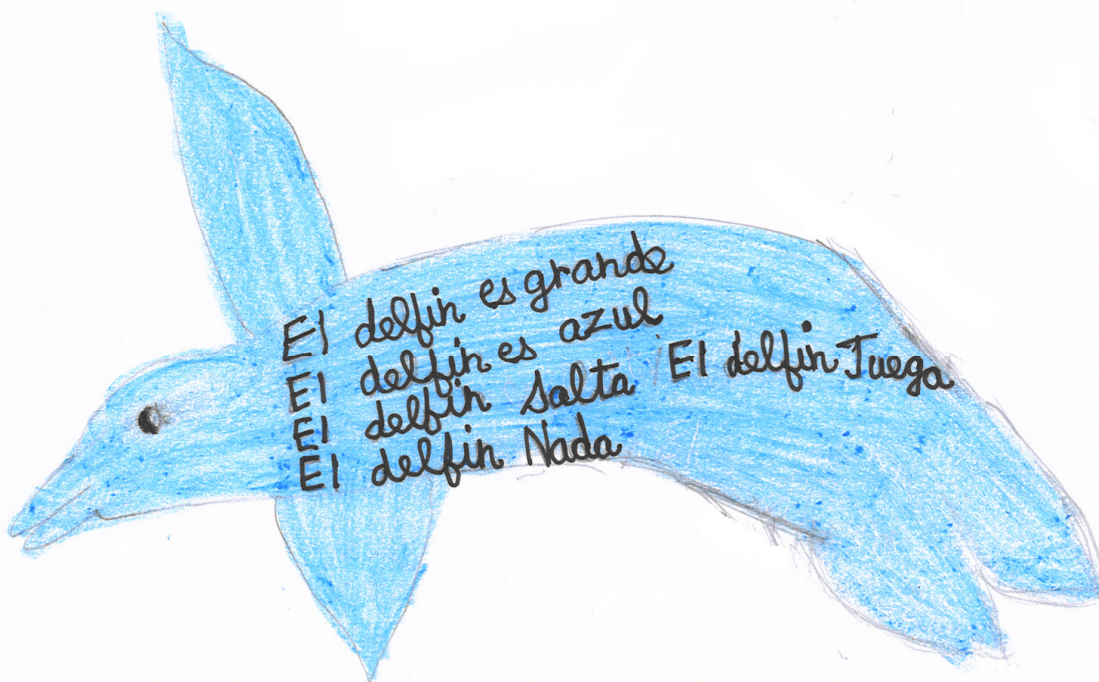 El delfin es grande
El delfin es azul
El delfin salta
El delfin Nada
El delfin Juega